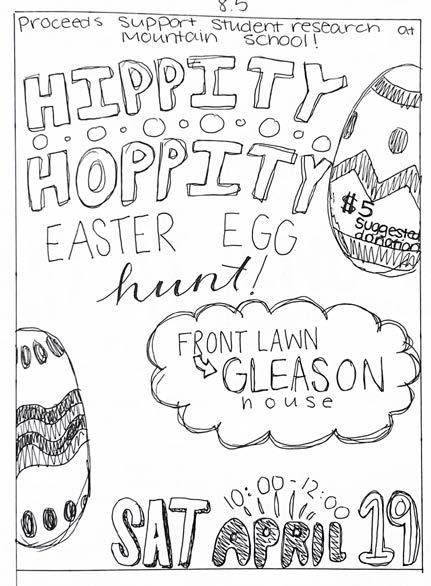 8.5
Proceeds support student research at
Mountain School!
HIPPITY
HOPPITY
$5
suggested
donation
EASTER EGG
hunt!
FRONT LAWN
GLEASON
house
10:00-12:00
SAT APRIL 19